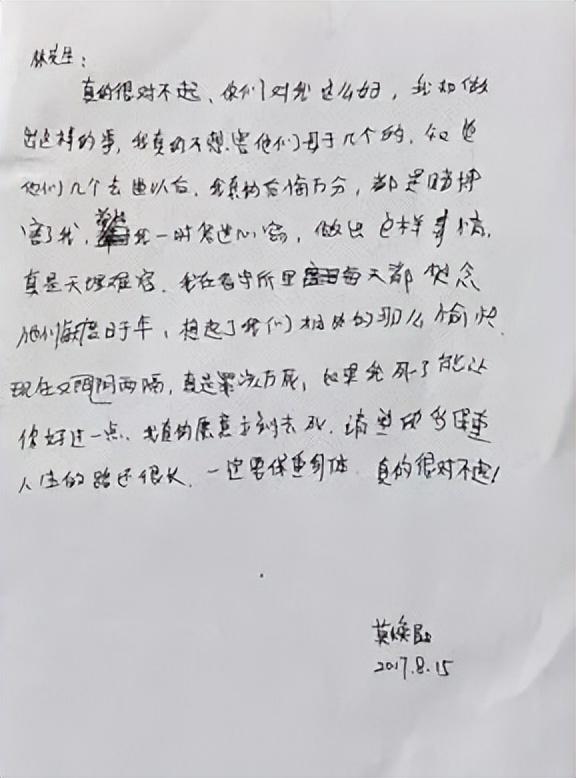 林先生：
真的很对不起、你们对我这么好，我却做
出这样的事，我真的不想害他们母子几个的，知道
他们几个去世以后，我真的后悔万分，都是赌博
害了我，我一时鬼迷心窍，做出这样事情，
真是天理难容．我在看守所里每天都想念
他们度日于年，想起了我们相处的那么愉快，
现在又阴阳两隔，真是罪该万死，如果我死了能让
你好过一点、我真的愿意立刻去死．请望你多保重
人生的路还很长．一定要保重身体．真的很对不起！
莫焕晶
2017.8.15